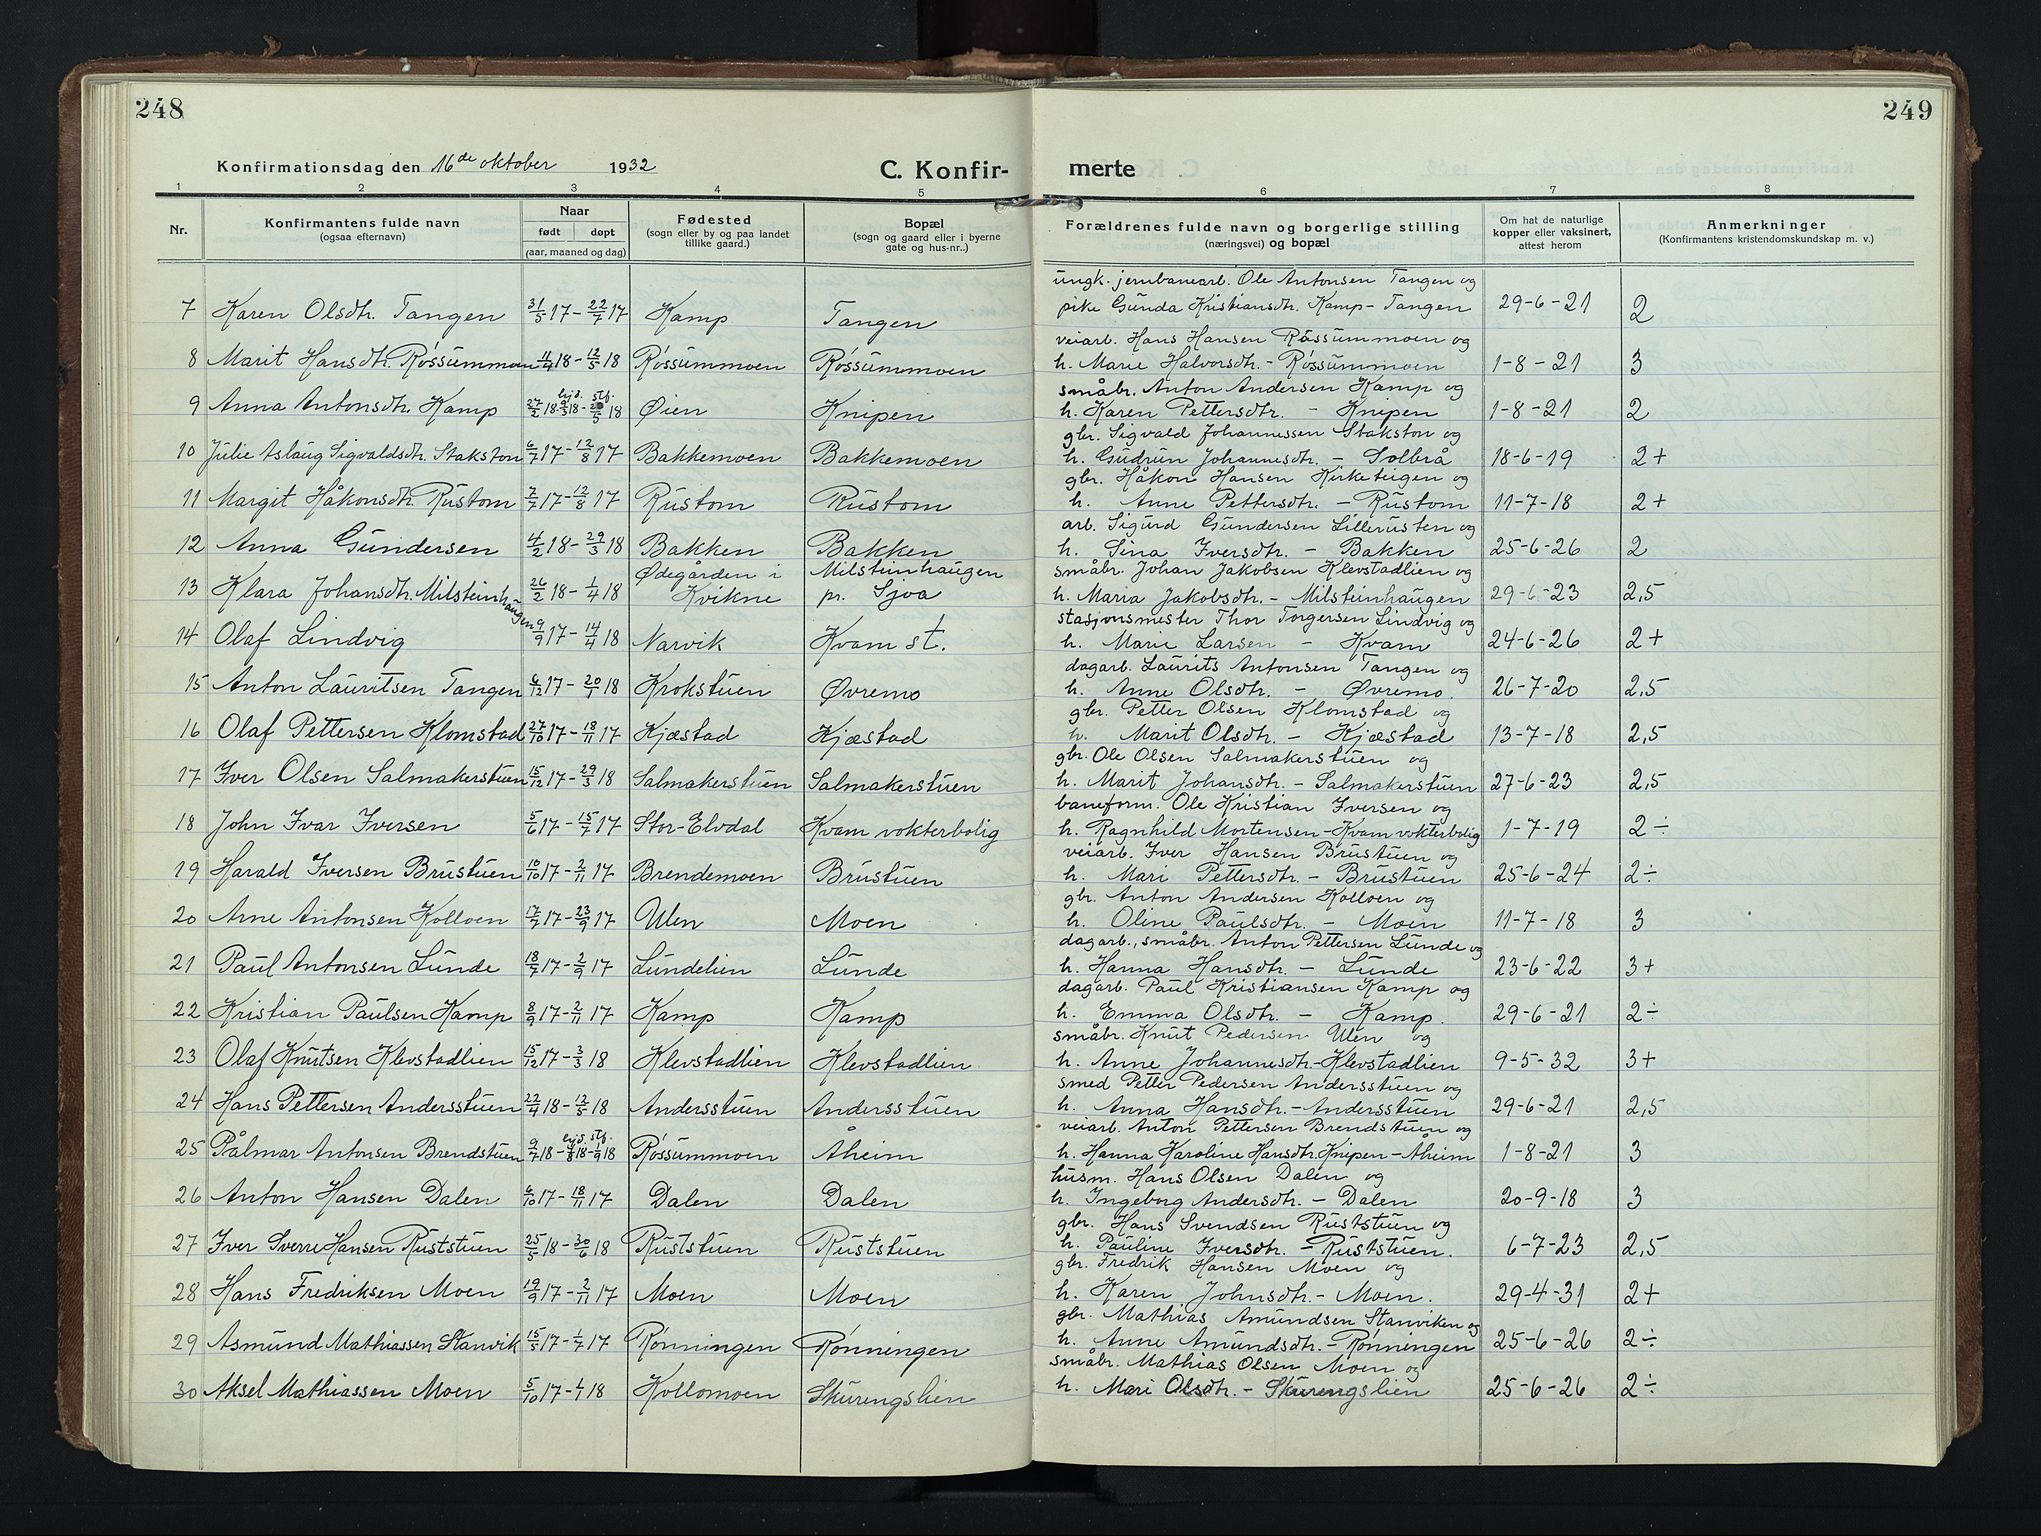 248
249
Konfirmationsdag den 16de oktober 1932
C. Konfir-
merte
1 2 3 4 5 6 7 8
Nr.
Konfirmantens fulde navn
(ogsaa efternavn)
Naar
født døpt
(aar, maaned og dag)
Fødested
(sogn eller by og paa landet
tillike gaard.)
Bopæl
(sogn og gaard eller i byerne
gate og hus-nr..)
Forældrenes fulde navn og borgerlige stilling
(næringsvei) og bopæl
Om hat de naturlige
kopper eller vaksinert,
attest herom
Anmerkninger
(Konfirmantens kristendomskundskap m. v.)
ungk. jernbanearb. Ole Antonsen Tangen og
7 Karen Olsdtr. Tangen 31/5 17 - 22/7 17 Kamp Tangen pike Gunda Kristiansdtr. Kamp - Tangen 29-6-21 2
veiarb. Hans Hansen Røssummoen og
8 Marit Hansdtr. Røssummoen 11/4 18 - 12/5 18 Røssummoen Røssummoen h. Marie Halvorsdtr. - Røssummoen 1-8-21 3
småbr. Anton Andersen Kamp og
9 Anna Antonsdtr. Kamp 27/2 18 hjd. 18 - stf. 18 Øien Knipen h. Karen Pettersdtr. - Knipen 1-8-21 2
gbr. Sigvald Johannessen Stakston og
10 Julie Aslaug Sigvaldsdtr. Stakston 6/7 17 - 12/8 17 Bakkemoen Bakkemoen h. Gudrun Johannesdtr. - Solbrå 18-6-19 2+
gbr. Håkon Hansen Kirketeigen og
11 Margit Håkonsdtr. Rustom 7/7 17 - 12/8 17 Rustom Rustom h. Anne Pettersdtr. - Rustom 11-7-18 2+
arb. Sigurd Gundersen Lillerusten og
12 Anna Gundersen 4/2 18 - 29/3 18 Bakken Bakken h. Sina Iversdtr. - Bakken 25-6-26 2
Ødegården i Milsteinhaugen småbr. Johan Jakobsen Klevstadlien og
13 Klara Johansdtr. Milsteinhaugen 26/2 18 - 1/4 18 Kvikne pr. Sjoa h. Maria Jakobsdtr. - Milsteinhaugen 29-6-23 2,5
stasjonsmester Thor Torgersen Lindvig og
14 Olaf Lindvig 9/9 17 - 14/4 18 Narvik Kvam st. h. Marie Larsen - Kvam 24-6-26 2+
dagarb. Laurits Antonsen Tangen og
15 Anton Lauritsen Tangen 6/12 17 - 20/1 18 Krokstuen Øvremo h. Anne Olsdtr. - Øvremo. 26-7-20 2,5
gbr. Petter Olsen Klomstad og
16 Olaf Pettersen Klomstad 27/10 17 - 18/11 17 Kjæstad Kjæstad h. Marit Olsdtr. - Kjæstad 13-7-18 2,5
gbr. Ole Olsen Salmakerstuen og
17 Iver Olsen Salmakerstuen 15/12 17 - 29/3 18 Salmakerstuen Salmakerstuen h. Marit Johansdtr. - Salmakerstuen 27-6-23 2,5
baneform. Ole Kristian Iversen og
18 John Ivar Iversen 5/6 17 - 15/7 17 Stor-Elvdal Kvam vokterbolig h. Ragnhild Mortensen - Kvam vokterbolig 1-7-19 2÷
veiarb. Iver Hansen Brustuen og
19 Harald Iversen Brustuen 10/10 17 - 2/11 17 Brendemoen Brustuen h. Mari Pettersdtr. - Brustuen 25-6-24 2÷
gbr. Anton Andersen Kolloen og
20 Arne Antonsen Kolloen 17/7 17 - 23/9 17 Ulen Moen h. Oline Paulsdtr. - Moen 11-7-18 3
dagarb., småbr. Anton Pettersen Lunde og
21 Paul Antonsen Lunde 18/7 17 - 2/9 17 Lundelien Lunde h. Hanna Hansdtr. - Lunde 23-6-22 3+
dagarb. Paul Kristiansen Kamp og
22 Kristian Paulsen Kamp 8/9 17 - 2/11 17 Kamp Kamp h. Emma Olsdtr. - Kamp. 29-6-21 2÷
småbr. Knut Pedersen Ulen og
23 Olaf Knutsen Klevstadlien 15/12 17 - 3/3 18 Klevstadlien Klevstadlien h. Anne Johannesdtr. - Klevstadlien 9-5-32 3+
smed Petter Pedersen Andersstuen og
24 Hans Pettersen Andersstuen 22/4 18 - 12/5 18 Andersstuen Andersstuen h. Anna Hansdtr. - Andersstuen 29-6-21 2,5
veiarb. Anton Pettersen Brendstuen og
25 Pålmar Antonsen Brendstuen 9/7 18 - hjd. 18 - stf. 1/9 18 Røssummoen Åheim h. Hanna Karoline Hansdtr. Knipen - Åheim 1-8-21 3
husm. Hans Olsen Dalen og
26 Anton Hansen Dalen 6/10 17 - 18/11 17 Dalen Dalen h. Ingeborg Andersdtr. - Dalen 20-9-18 3
gbr. Hans Svendsen Ruststuen og
27 Iver Sverre Hansen Ruststuen 25/5 18 - 30/6 18 Ruststuen Ruststuen h. Pauline Iversdtr. - Ruststuen. 6-7-23 2,5
gbr. Fredrik Hansen Moen og
28 Hans Fredriksen Moen 19/9 17 - 2/11 17 Moen Moen h. Karen Johnsdtr. - Moen. 29-4-31 2+
gbr. Mathias Amundsen Stanviken og
29 Asmund Mathiassen Stanvik 15/5 17 - 1/7 17 Rønningen Rønningen h. Anne Amundsdtr. - Rønningen 25-6-26 2÷
småbr. Mathias Olsen Moen og
30 Aksel Mathiassen Moen 5/10 17 - 1/1 18 Kollomoen Skurengslien h. Mari Olsdtr. - Skurengslien 25-6-26 2÷